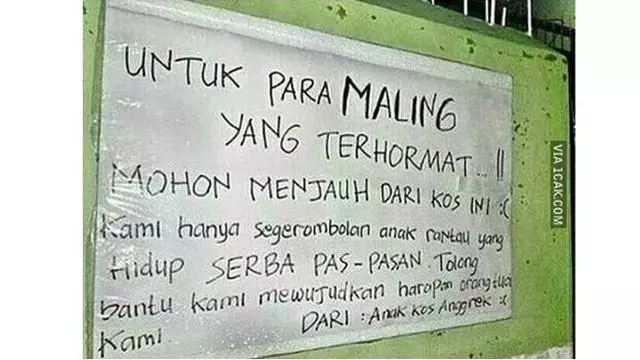 UNTUK PARA MALING
YANG TERHORMAT...!!
MOHON MENJAUH DARI KOS INI :(
Kami hanya segerombolan anak rantau yang
Hidup SERBA PAS-PASAN. Tolong
bantu kami mewujudkan harapan orangtua
Kami.
DARI : Anak Kos Anggrek :(
VIA 1CAK.COM